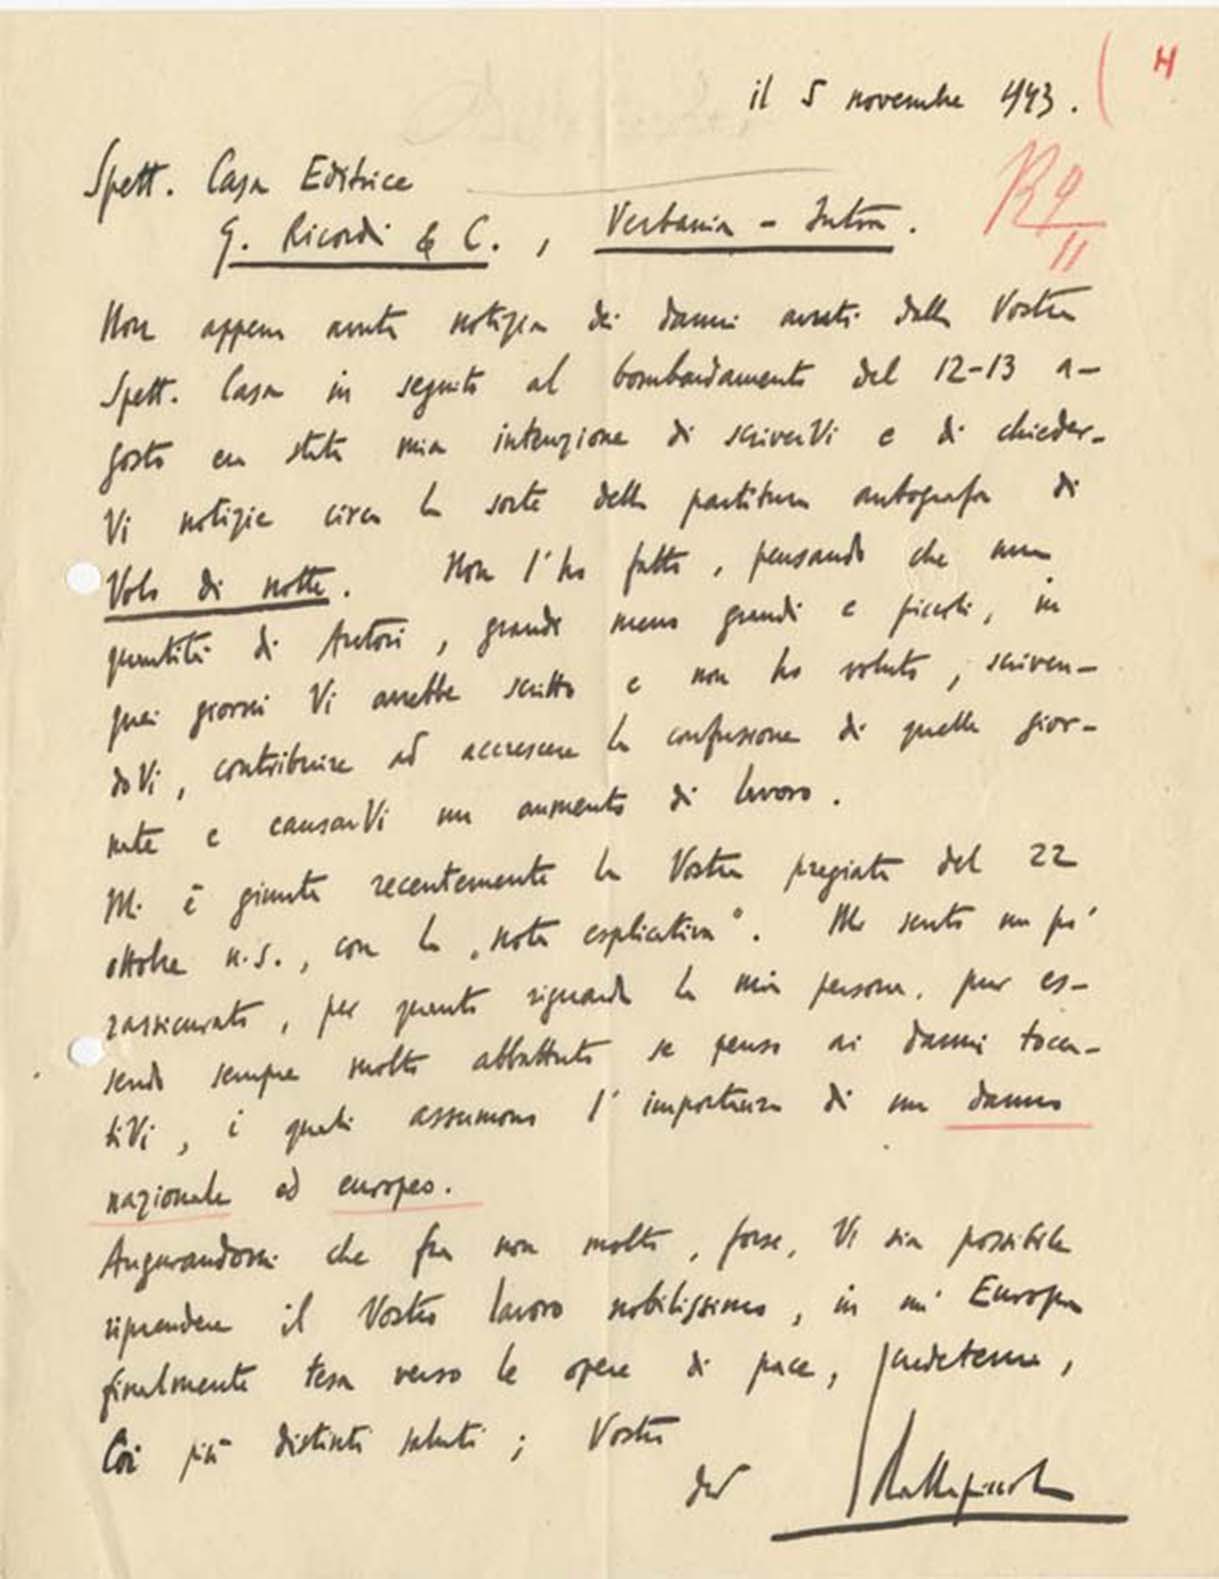 H
il 5 novembre 1943.
Spett. Casa Editrice
G. Ricordi & C., Verbania - Intra.
R 9/11
Non appena avuta notizia dei danni avuti dalla Vostra
Spett. Casa in seguito al bombardamento del 12-13 a-
gosto era stata mia intenzione di scriverVi e di chieder-
Vi notizie circa la sorte della partitura autografa di
Volo di notte. Non l'ho fatto, pensando che una
quantità di Autori, grandi meno grandi e piccoli, in
quei giorni Vi avrebbe scritto e non ho voluto, scriven-
doVi, contribuire ad accrescere la confusione di quelle gior-
nate e causarVi un aumento di lavoro.
Mi è giunta recentemente la Vostra pregiata del 22
ottobre u.s., con la "nota esplicativa". Mi sento un po'
rassicurato, per quanto riguarda la mia persona, pur es-
sendo sempre molto abbattuto se penso ai danni tocca-
tiVi, i quali assumono l'importanza di un danno
nazionale ed europeo.
Augurandomi che fra non molto, forse, Vi sia possibile
riprendere il Vostro lavoro nobilissimo, in un' Europa
finalmente tesa verso le opere di pace, prudetene,
Coi più distinti saluti; Vostro
dev Dallapiccola